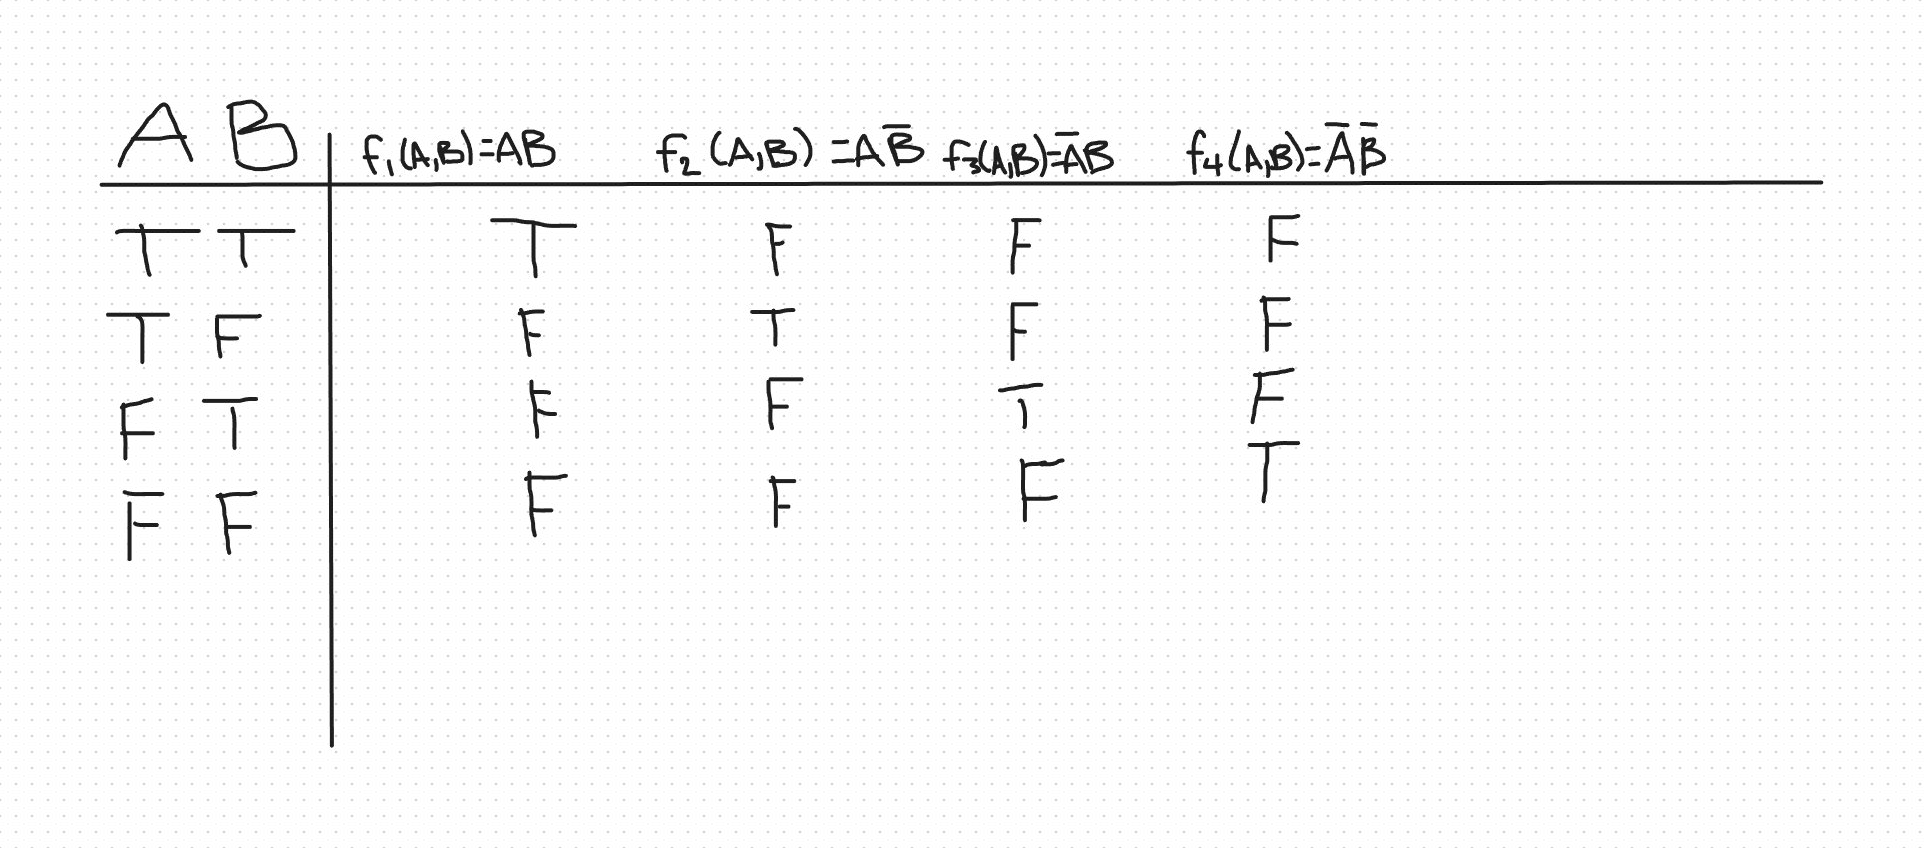 A B f₁(A,B)=AB f₂(A,B)=AB̅ f₃(A,B)=A̅B f₄(A,B)=A̅ B̅
T T T F F F
T F F T F F
F T F F T F
F F F F F T